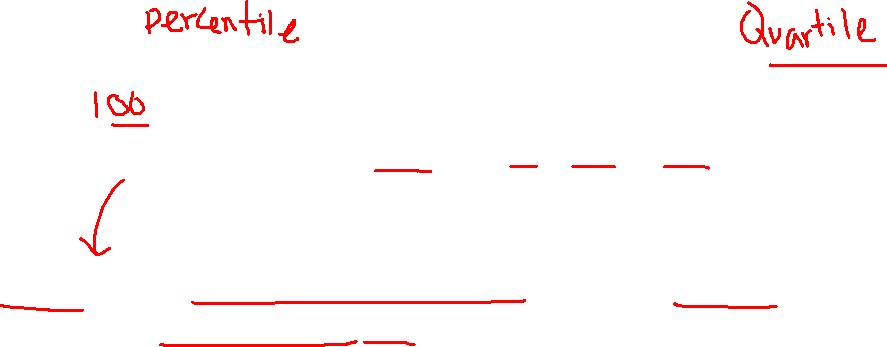 Percentile Quartile
100